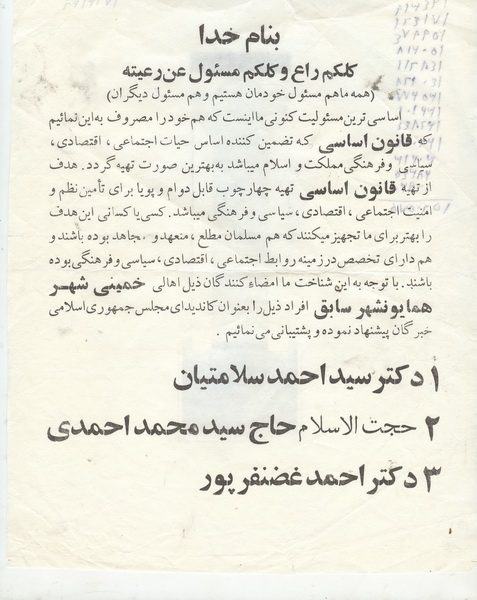 بنام خدا
کلکم راع و کلکم مسئول عن رعیته
(همه ماهم مسئول خودمان هستیم و هم مسئول دیگران)
اساسی ترین مسئولیت کنونی ما اینست که هم خود را مصروف به این نمائیم
که قانون اساسی که تضمین کننده اساس حیات اجتماعی ، اقتصادی ،
سیاسی و فرهنگی مملکت و اسلام میباشد به بهترین صورت تهیه گردد. هدف
از تهیه قانون اساسی تهیه چهارچوب قابل دوام و پویا برای تأمین نظم و
امنیت اجتماعی ، اقتصادی ، سیاسی و فرهنگی میباشد. کسی یا کسانی این هدف
را بهتر برای ما تجهیز میکنند که هم مسلمان مطلع ، متعهد و مجاهد بوده باشند و
هم دارای تخصص در زمینه روابط اجتماعی ، اقتصادی ، سیاسی و فرهنگی بوده
باشند. با توجه به این شناخت ما امضاء کنندگان ذیل اهالی خمینی شهر
همایونشهر سابق افراد ذیل را بعنوان کاندیدای مجلس جمهوری اسلامی
خبرگان پیشنهاد نموده و پشتیبانی می نمائیم .
۱ دکتر سید احمد سلامتیان
۲ حجت الاسلام حاج سید محمد احمدی
۳ دکتر احمد غضنفر پور